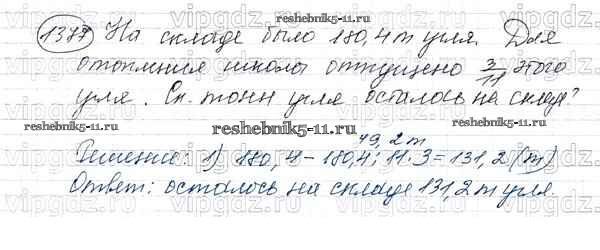 reshebnik5-11.ru
1373 На складе было 180,4 т угля. Для
отопления школы отпущено 3/11 этого
угля. Ск. тонн угля осталось на складе?
reshebnik5-11.ru
reshebnik5-11.ru
49,2 т
Решение: 1) 180,4 - 180,4 : 11 · 3 = 131,2 (т)
Ответ: осталось на складе 131,2 т угля.
reshebnik5-11.ru